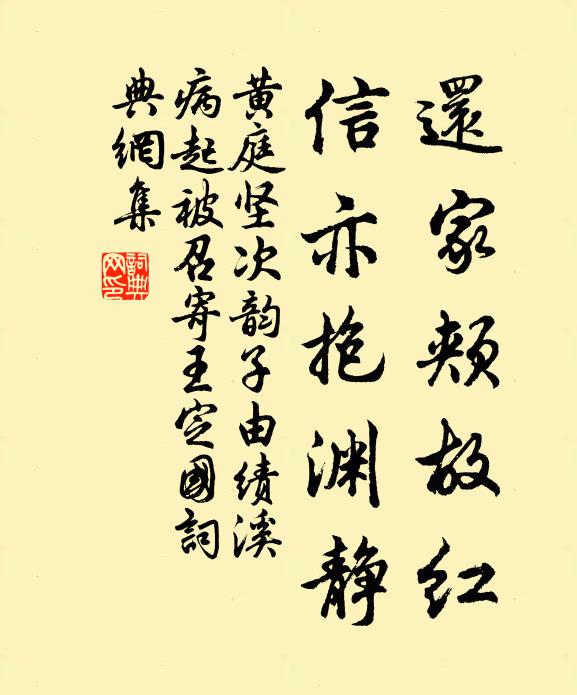 還家頬故红
信亦抱渊静
黄庭坚次韵子由绩溪
病起被召寄王定國詞
典網集
詞典网印